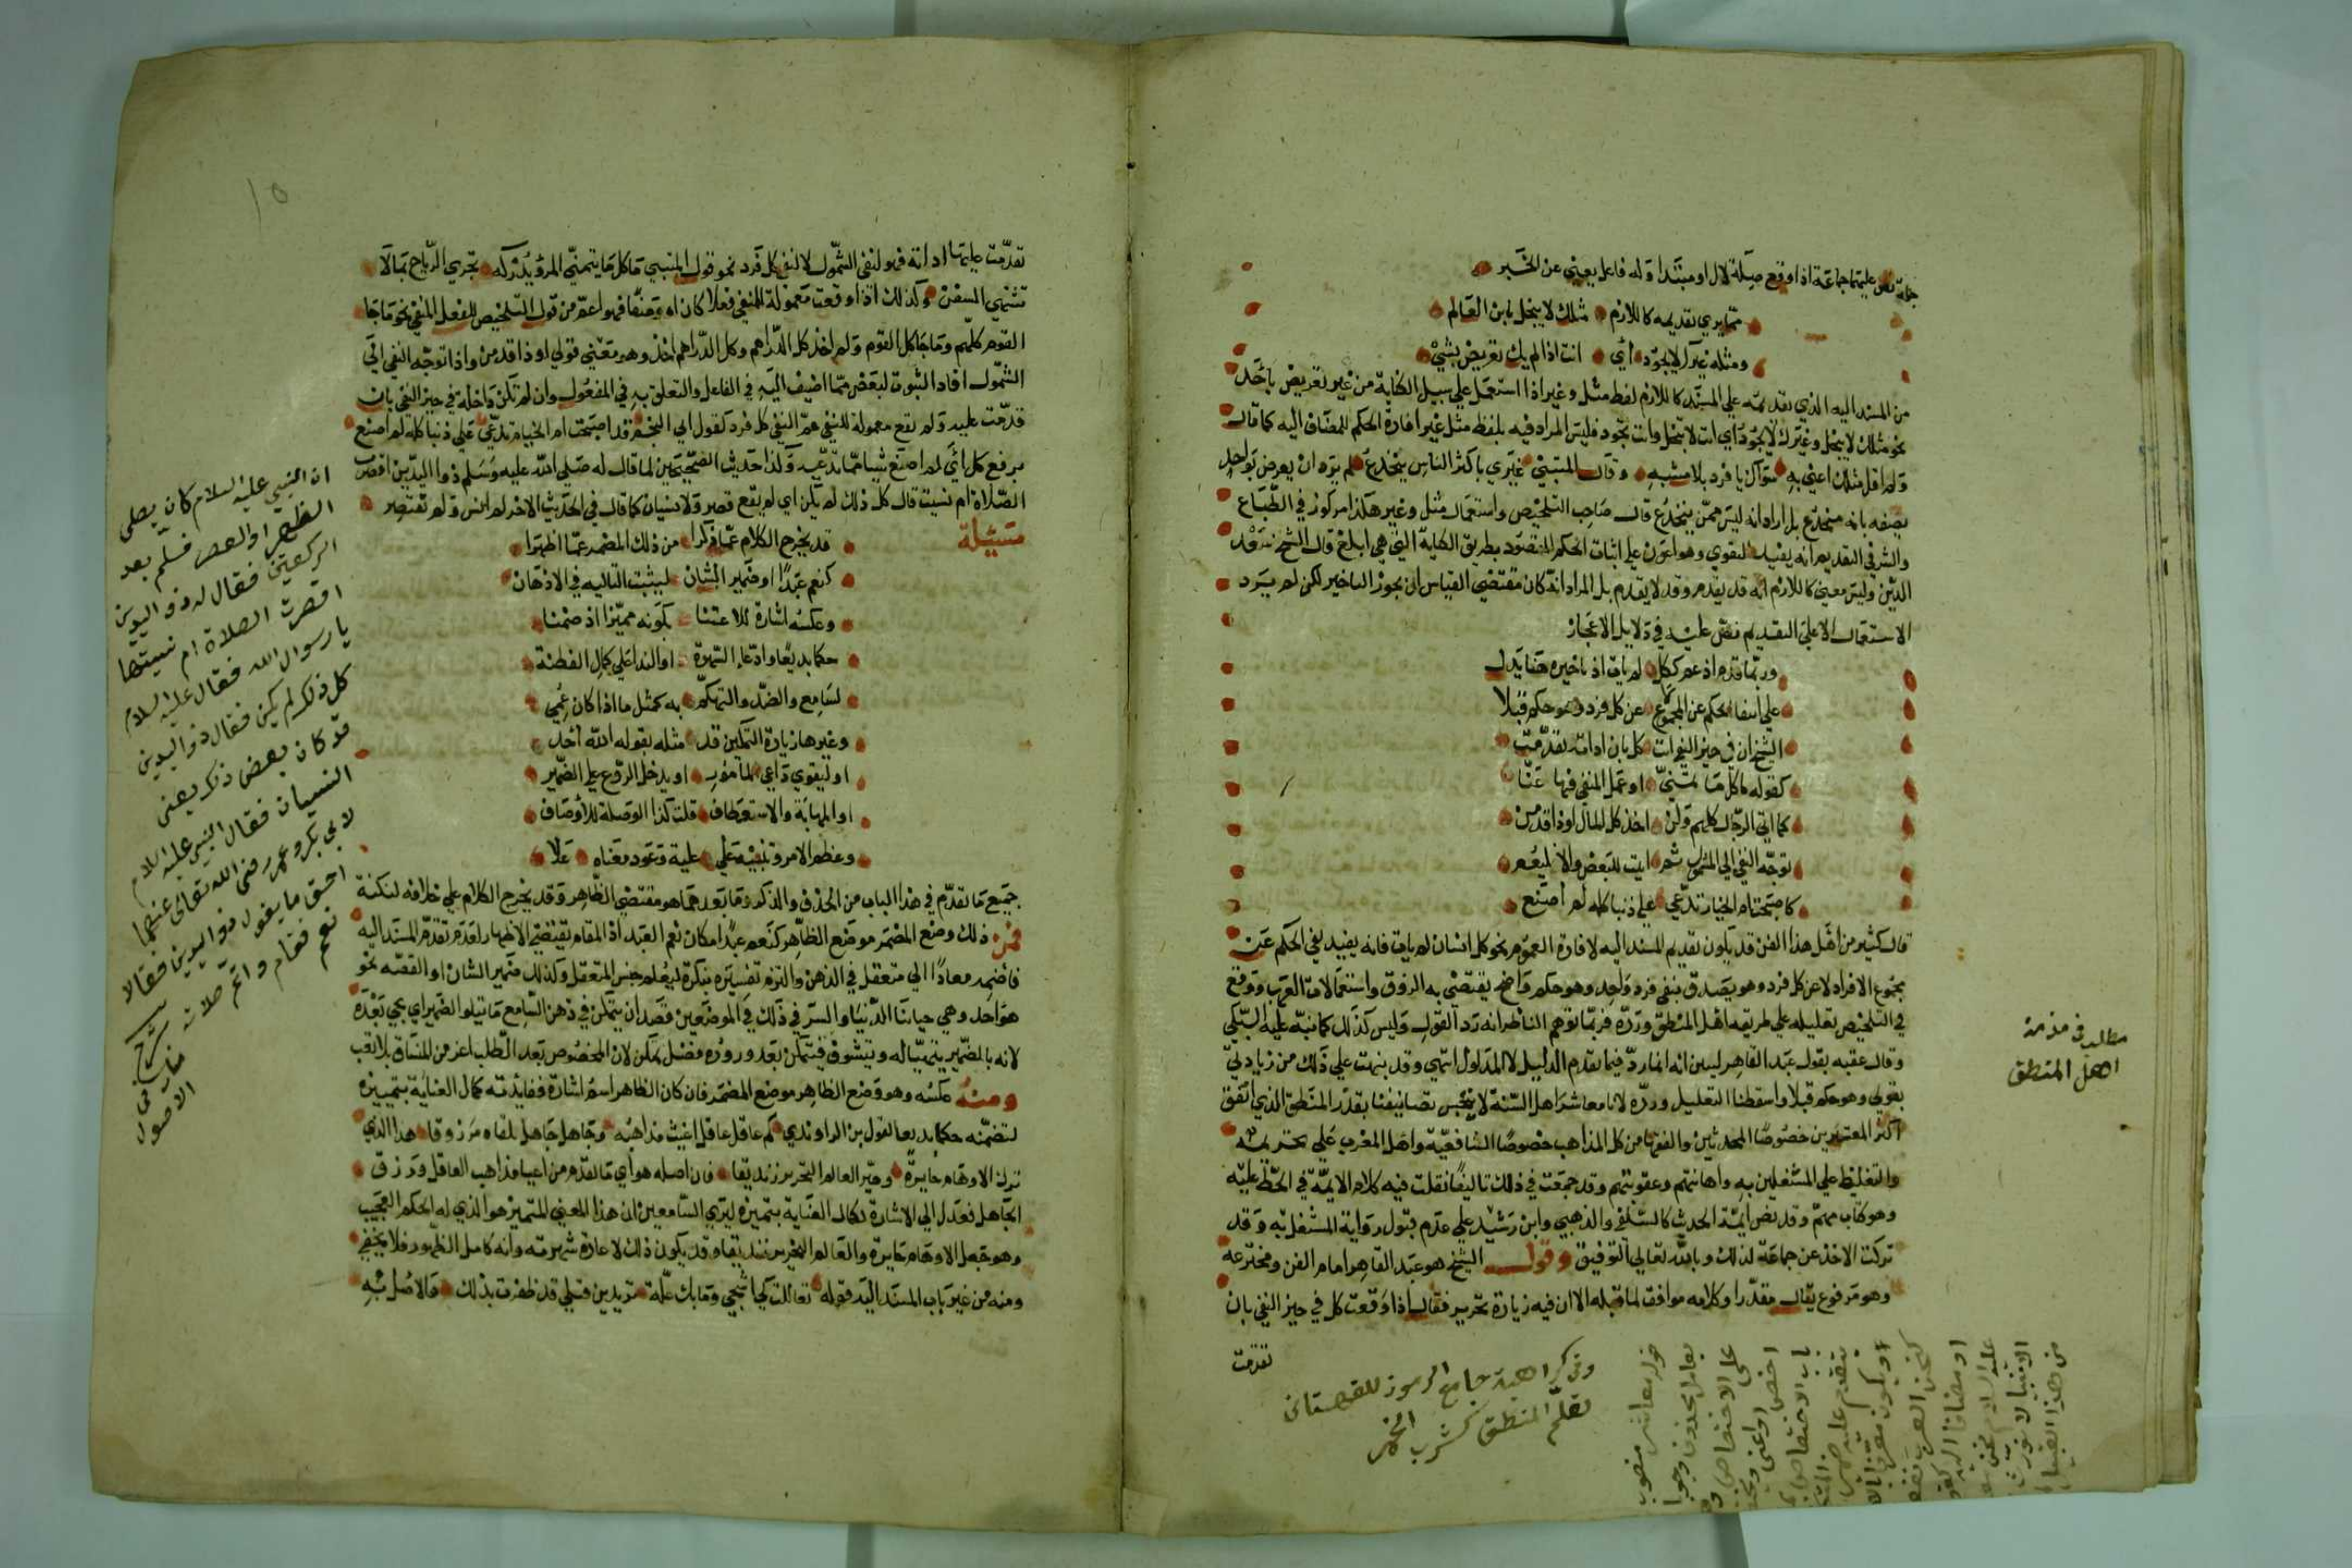 جملة نص عليهما جماعة اذا وقع صلة لال او مبتدا وله فاعل يغني عن الخبر
مما يري تقديمه كاللازم مثلك لا يبخل يابن العالم
ومثله غيرك لا يجود أي انت اذا لم يك تعريض بشيْ
من المسند اليه الذي تقديمه علي المسند كاللازم لفظ مثل وغير اذا استعمل علي سبيل الكناية من غير تعريض باحد
نحو مثلك لا يبخل وغيرك لا يجود أي انت لا تبخل وانت تجود فليس المراد فيه بلفظ مثل غير افادة الحكم للمضاف اليه كما قال
ولم اقل مثلك اعني به سواك يا فرد بلا مشبه وقال المتنبيّ غيري باكثر الناس ينخدع لم يرد ان يعرض بواحد
يصفه بانه منخدع بل اراد انه ليس ممن ينخدع قال صاحب التلخيص واستعمال مثل وغير هكذا مركوز في الطباع
والسر في التقديم انه يفيد التقوي وهو اعون علي اثبات الحكم المقصود بطريق الكناية التي هي ابلغ قال الشيخ سعد
الدين وليس معنى كاللازم انه قد يقدم وقد لا يقدم بل المراد انه كان مقتضي القياس ان يجوز التاخير لكن لم يرد
الاستعمال الا على التقديم نص عليه في دلايل الاعجاز
وربما قدم اذ عم ككل لم يات اذ تاخيره هنا يدل
علي انتفا الحكم عن المجموع عن كل فرد وهو حكم قبلا
الشيخ ان في حيز النفي ات كل بان اداته تقدمت
كقوله ما كل ما تمنيّ او عمل المنفي فيها عنّا
كما اتي الرجال كلهم ولن اخذ كل المال او ذا قدمن
توجه النفي الي الشمول ثم اثبت لبعض والا فليعم
كاصبحت ام الخيار تدعي علي ذنبا كله لم أصنع
قال كثير من اهل هذا الفن قد يكون تقديم المسند اليه لافادة العموم نحو كل انسان لم يات فانه يفيد نفي الحكم عن
مجموع الافراد لا عن كل فرد وهو يصدق بنفي فرد واحد وهو حكم واضح يقتضي به الذوق واستعمالات العرب ووقع
في التلخيص تعليله علي طريقه اهل المنطق ورده فربما توهم الناظر انه رد القول وليس كذلك كما نبه عليه السبكي
وقال عقبه بقول عبد القاهر ليبين انه انما رد فيما تقدم الدليل لا المدلول انتهي وقد نبهت علي ذلك من زيادتي
بقولي وهو حكم قبلا واسقطنا التعليل ورده لانا معاشر اهل السنة لا ننجس تصانيفنا بقذر المنطق الذي اتفق
اكثر المعتبرين خصوصا المحدثين والفقها من كل المذاهب خصوصا الشافعية واهل المغرب علي تحريمه
والتغليظ علي المشتغلين به واهانتهم وعقوبتهم وقد جمعت في ذلك تاليفا نقلت فيه كلام الايمة في الحط عليه
وهو كتاب مهم وقد نص ايمة الحديث كالسلفي والذهبي وابن رشيد علي عدم قبول رواية المشتغل به وقد
تركت الاخذ عن جماعة لذلك وبالله تعالي التوفيق وقول الشيخ هو عبد القاهر امام الفن ومخترعه
وهو مرفوع يقال مقدرا وكلامه موافق لما قبله الا ان فيه زيادة تحرير فقال اذا وقعت كل في حيز النفي بان
تقدمت
مطلب في مذمة
اهل المنطق
وفي كراهية جامع الرموز للقهستاني
تعلم المنطق كشرب الخمر
قوله معاشر منصوب
بعامل محذوف وجوبا
علي الاختصاص
١٥
تقدمت عليها اداته فهو لنفي الشمول لا لنفي كل فرد نحو قول المتنبي ما كل ما يتمنى المرؤ يدركه تجري الرياح بما لا
تشتهي السفن وكذلك اذا وقعت معمولة للمنفي فعلا كان او وصفا فهو اعم من قول التلخيص للفعل المنفي نحو ما جا
القوم كلهم وما جا كل القوم ولم اخذ كل الدراهم وكل الدراهم لم اخذ وهو معني قولي او ذا قدمن واذا توجه النفي الي
الشمول افاد الثبوت لبعض مما اضيف اليه في الفاعل والتعلق به في المفعول وان لم تكن داخلة في حيز النفي بان
قدمت عليه ولم تقع معمولة للنفي عم النفي كل فرد كقول ابي النجم قد اصبحت ام الخيار تدعي علي ذنبا كله لم اصنع
برفع كل أي لم اصنع شيا مما تدعيه ولذا حديث الصحيحين لما قال له صلي الله عليه وسلم ذوا اليدين اقصرت
الصلاة ام نسيت قال كل ذلك لم يكن اي لم يقع قصر ولا نسيان كما قال في الحديث الاخر لم انس ولم تقتصر
مسئلة
قد يخرج الكلام عما ذكرا من ذلك المضمر عما اظهرا
كنعم عبدًا او ضمير الشان ليثبت التاليه في الاذهان
وعكسه اشارة للاعتنا بكونه مميزا اذ ضمنا
حكما بديعا وادعاء الشهرة او الندا علي كمال الفطنة
لسامع والضد والتهكم به كمثل ما اذا كان عمي
وغيرها زيادة التمكين قد مثله بقوله الله أحد
او ليقوي داعي المامور او يدخل الروع على الضمير
او المهابة والاستعطاف قلت كذا الوصلة للأوصاف
وعظم الامر وتنبيه علي علية وعود معناه علا
جميع ما تقدم في هذا الباب من الحذف والذكر وما بعدهما هو مقتضي الظاهر وقد يخرج الكلام علي خلافه لنكتة
فمن ذلك وضع المضمر موضع الظاهر كنعم عبدًا مكان نعم العبد اذ المقام يقتضي الاظهار لعدم تقدم المسند اليه
فاضمر معادًا الي متعقل في الذهن والتزم تفسيره بنكرة ليعلم جنس المتعقل وكذلك ضمير الشان او القصه نحو
هو احد وهي حياتنا الدنيا والسر في ذلك في الموضعين قصد ان يتمكن في ذهن السامع ما يتلو الضمير اي يجي بعده
لانه بالضمير يتهيا له ويتشوق فيتمكن بعد وروده فضل تمكن لان المحصوص بعد الطلب اعز من المنساق بلا تعب
ومنه عكسه وهو وضع الظاهر موضع المضمر فان كان الظاهر اسم اشارة ففايدته كمال العناية بتمييزه
لتضمنه حكما بديعا كقول بن الراوندي كم عاقل عاقل اعيت مذاهبه وجاهل جاهل تلقاه مرزوقا هذا الذي
ترك الاوهام حايرة وصير العالم النحرير زنديقا فان اصله هو أي ما تقدم من اعيا مذاهب العاقل ورزق
الجاهل فعدل الي الاشارة لكمال العناية بتمييزه ليري السامعين ان هذا المعني المتميز هو الذي له الحكم العجيب
وهو جعل الاوهام حايرة والعالم النحرير زنديقا وقد يكون ذلك لادعاء شهرته وانه كامل الظهور فلا يخفي
ومنه من غير باب المسند اليه قوله تعاللت كي اشجي وما بك علة تريدين قتلي قد ظفرت بذلك والاصل به
ان النبي عليه السلام كان يصلي
الظهر او العصر فسلم بعد
الركعتين فقال له ذو اليدين
اقصرت الصلاة ام نسيتها
يا رسول الله فقال عليه السلام
كل ذلك لم يكن فقال ذو اليدين
قد كان بعض ذلك يعني
النسيان فقال النبي عليه السلام
لابي بكر وعمر رضي الله تعالى عنهما
احق ما يقول ذو اليدين فقالا
نعم فقام واتم صلاته
شرح
منار في
الاصول